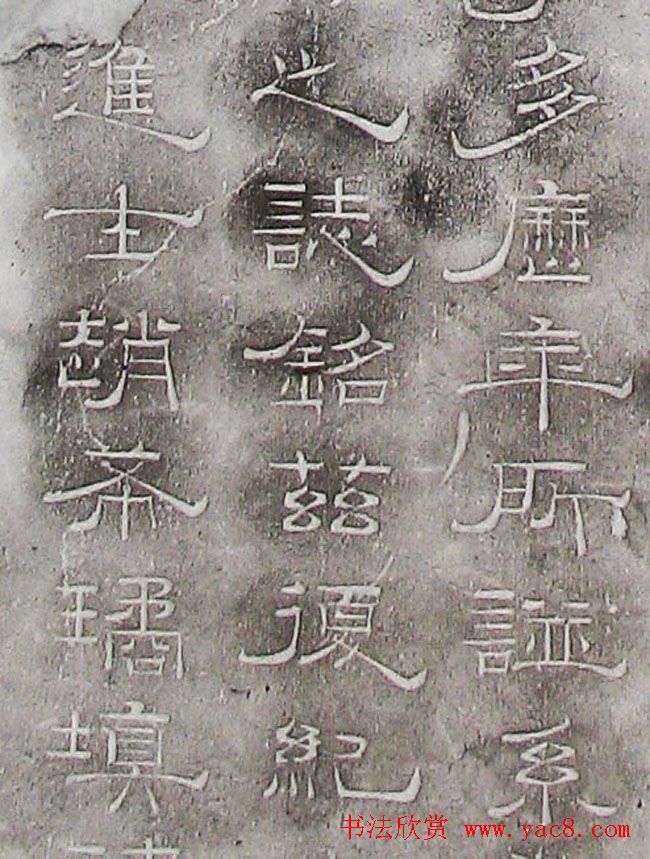 多歷年所系
之誌銘茲復紀
進士趙希璚填
书法欣赏 www.yac8.com